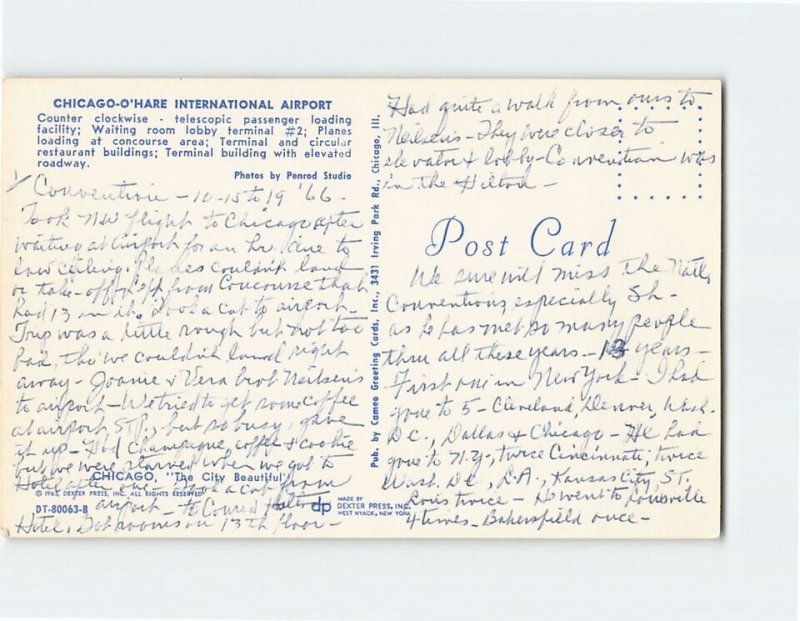 CHICAGO-O'HARE INTERNATIONAL AIRPORT
Counter clockwise - telescopic passenger loading
facility; Waiting room lobby terminal #2; Planes
loading at concourse area; Terminal and circular
restaurant buildings; Terminal building with elevated
roadway.
Photos by Penrod Studio
Convention - 10-15 to 19 '66 -
Took NW flight to Chicago after
waiting at airport for an hr. due to
low ceiling. Planes couldn't land
or take-off. Left from Concourse that
had 13 in it. Took a cab to airport -
Trip was a little rough but not too
bad, tho' we couldn't land right
away - Joanie & Vera brot Neilsen's
to airport - We tried to get some coffee
at airport St. P., but so busy, gave
it up - Had champagne, coffee & cookie
but we were starved when we got to
Hotel after one - Took a cab from
airport - to Conrad Hilton
Hotel. Got rooms on 13th floor -
CHICAGO, "The City Beautiful"
© 1962, DEXTER PRESS, INC. ALL RIGHTS RESERVED
DT-80063-B
Pub. by Cameo Greeting Cards, Inc., 3431 Irving Park Rd., Chicago, Ill.
dp MADE BY
DEXTER PRESS, INC.
WEST NYACK, NEW YORK
Had quite a walk from ours to
Neilsen's - They were closer to
elevator & lobby - Convention was
in the Hilton -
Post Card
We sure will miss the Natl.
Conventions, especially Sh-
as he has met so many people
thru all these years - 13 years -
First one in New York - I had
gone to 5 - Cleveland, Denver, Wash.
D.C., Dallas & Chicago - He had
gone to N.Y., twice Cincinnati, twice
Wash. D.C., L.A., Kansas City, St.
Louis twice - He went to Louisville
4 times - Bakersfield once -